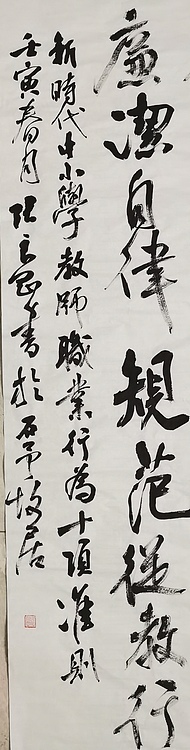 廉潔自律規范從教行
新時代中小學教師職業行為十項准則
壬寅春月 書於石 故居